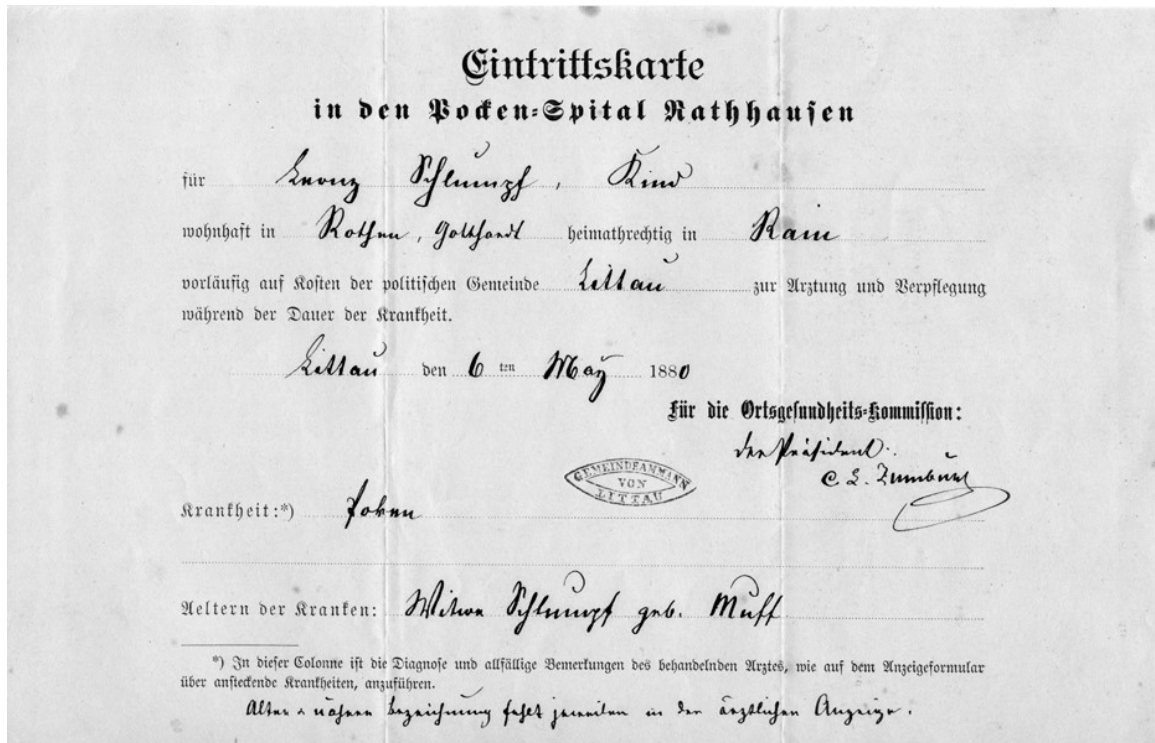 Eintrittskarte
in den Pocken-Spital Rathhausen
für Kreuz Schlumpf, Kind
wohnhaft in Rothen, Gotthardt heimathrechtig in Rain
vorläufig auf Kosten der politischen Gemeinde Littau zur Arztung und Verpflegung
während der Dauer der Krankheit.
Littau den 6 ten May 1880
Für die Ortsgesundheits-Kommission:
der Präsident.
C. L. Zumbühl
GEMEINDEAMMANN
VON
LITTAU
Krankheit:*) Poken
Aeltern der Kranken: Witwe Schlumpf geb. Muff
*) In dieser Colonne ist die Diagnose und allfällige Bemerkungen des behandelnden Arztes, wie auf dem Anzeigeformular
über ansteckende Krankheiten, anzuführen.
Alter & nähere Bezeichnung fehlt jeweilen in der ärztlichen Anzeige.